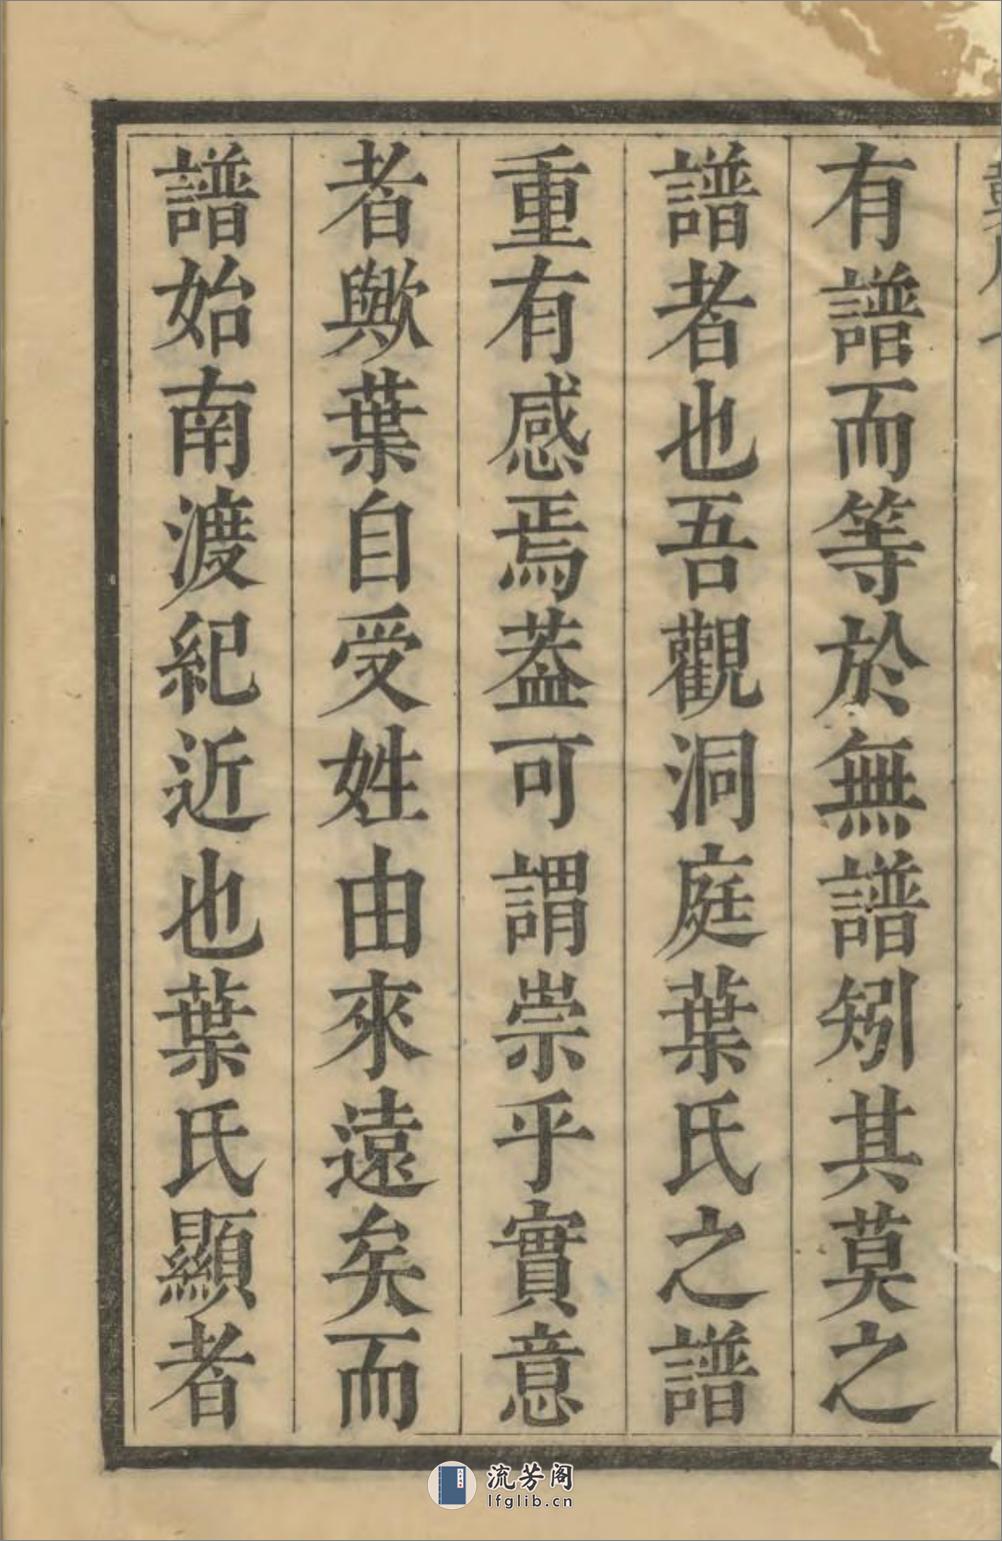 有譜而等於無譜矧其莫之
譜者也吾觀洞庭葉氏之譜
重有感焉葢可謂崇乎實意
者歟葉自受姓由來遠矣而
譜始南渡紀近也葉氏顯者
流芳阁
lfglib.cn